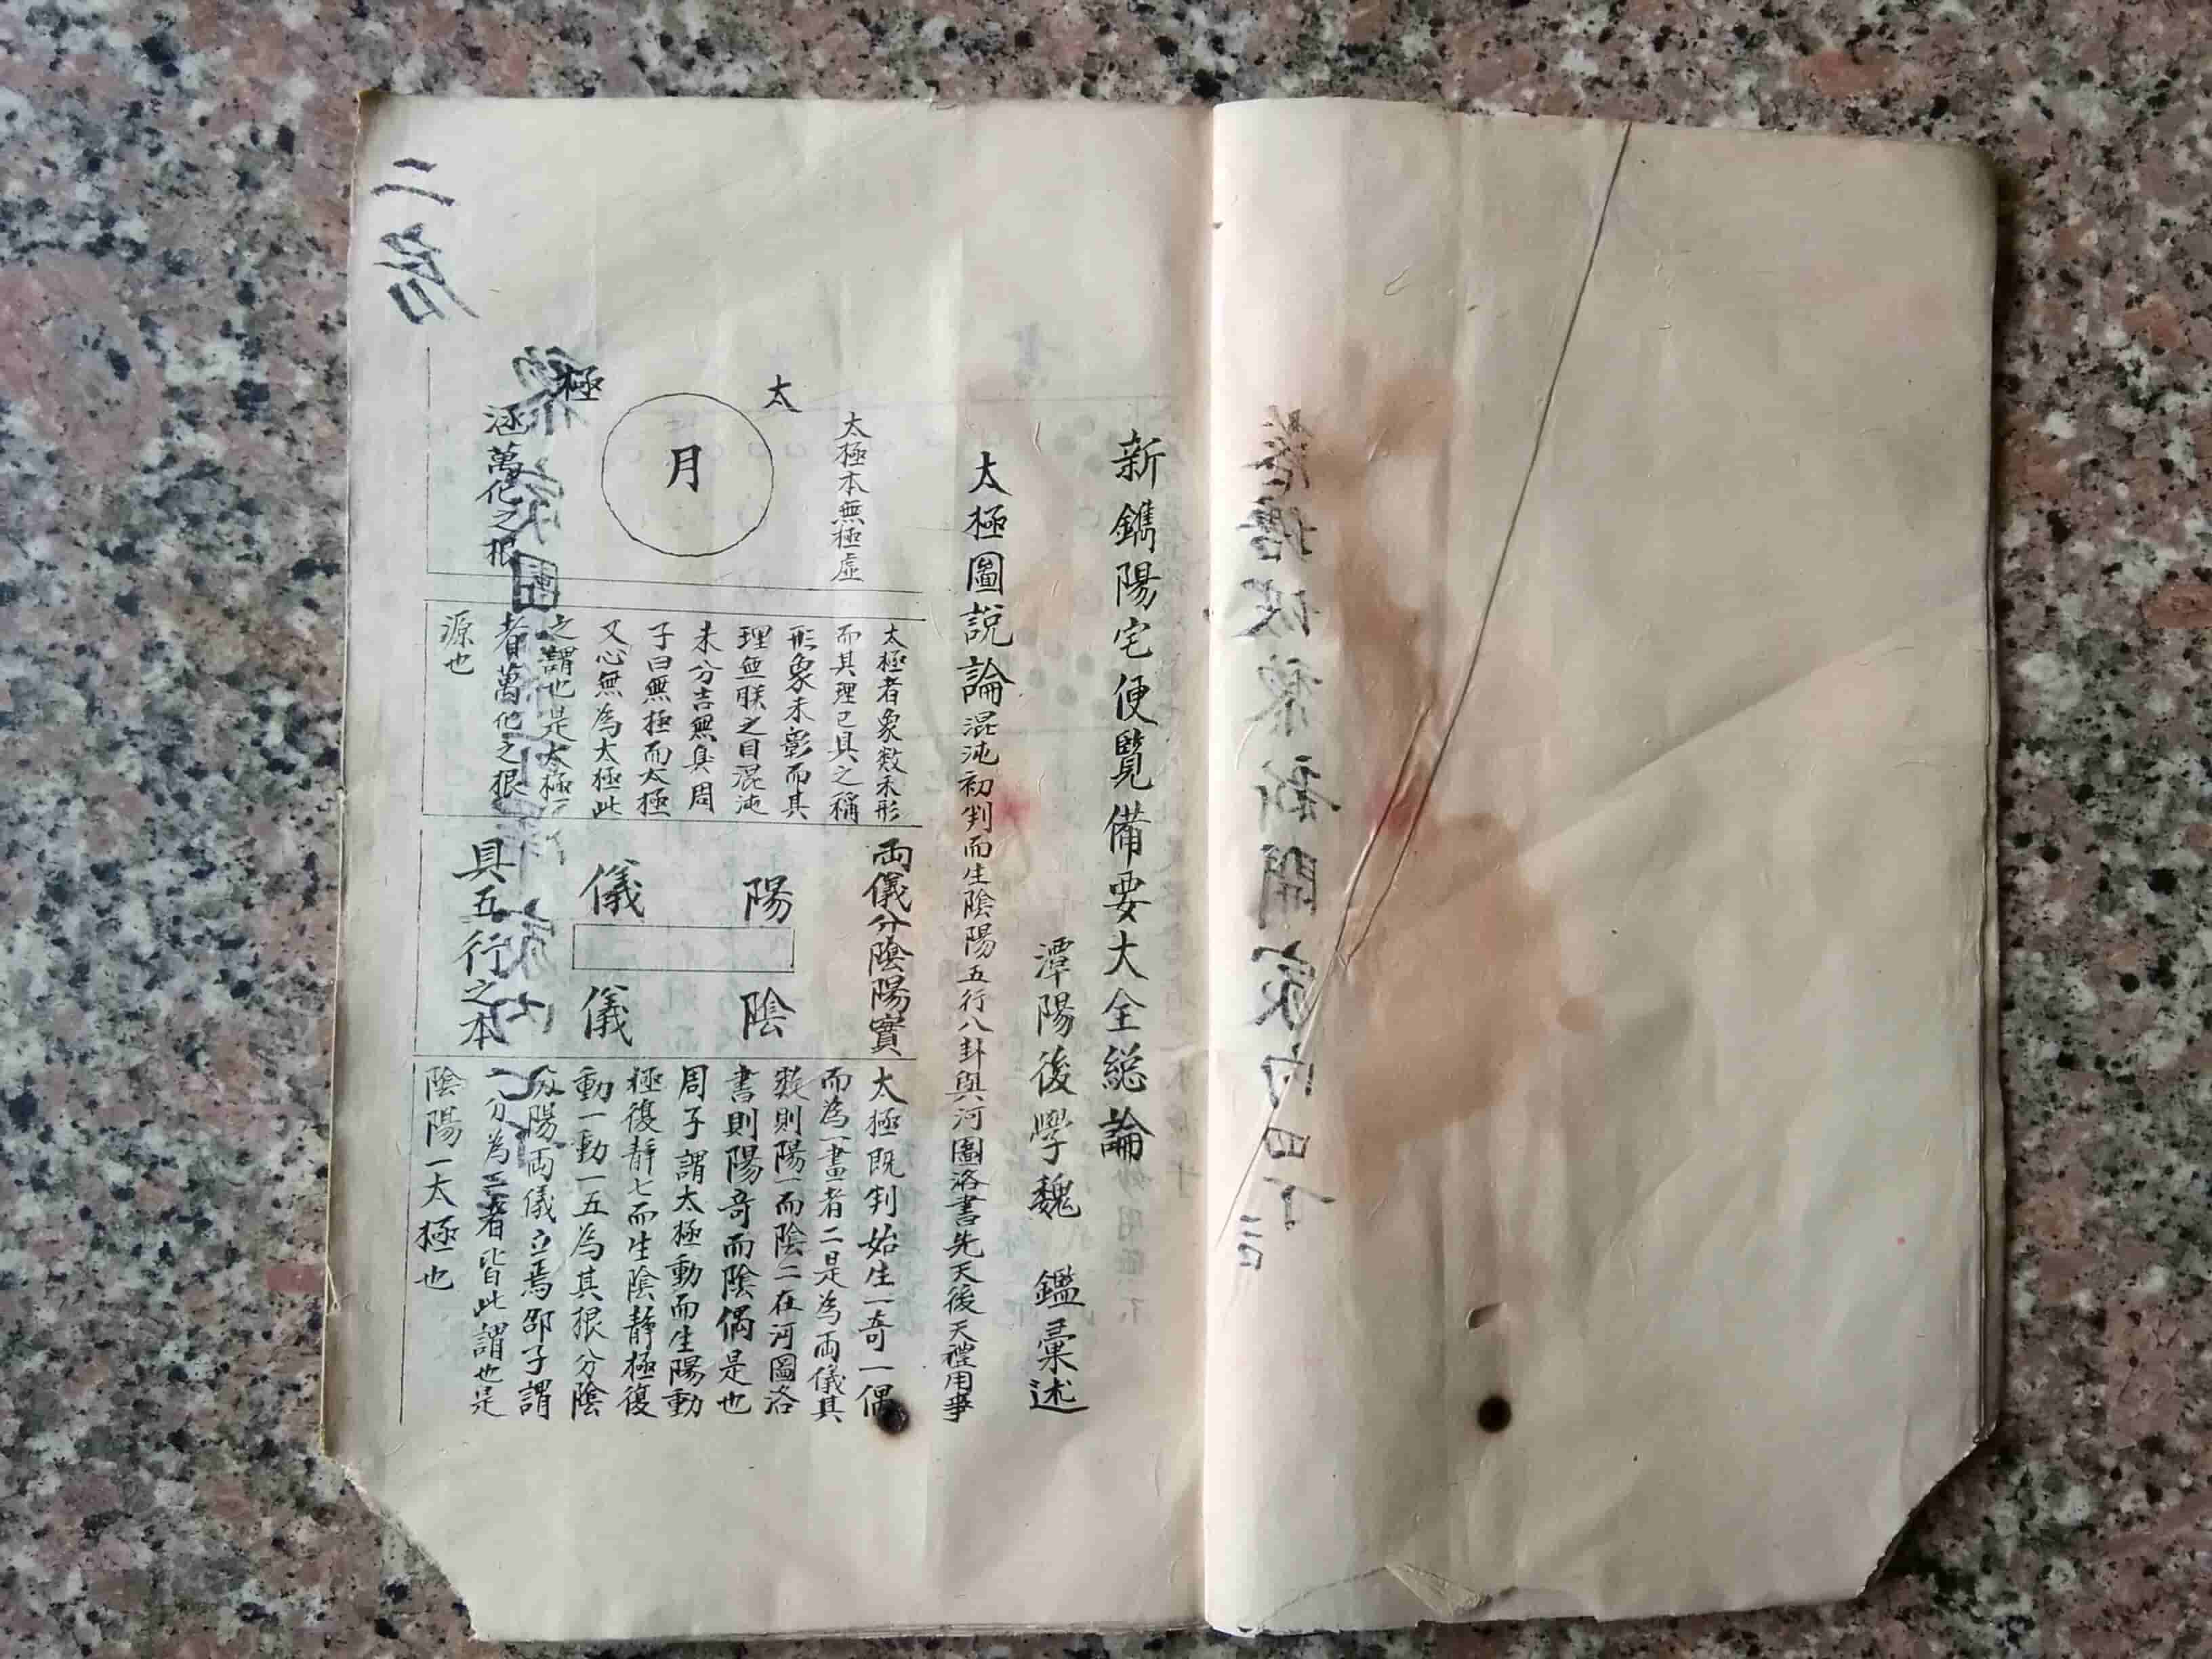 新鐫陽宅便覽備要大全総論
潭陽後學魏 鑑彙述
太極圖說論混沌初判而生陰陽五行八卦與河圖洛書先天後天禮用事
太極本無極虛
太
月
極
涵萬化之根
太極者象数未形
而其理已具之稱
形象未彰而其
理無朕之目混沌
未分吉無具周
子曰無極而太極
又心無為太極此
之謂也是太極
者萬化之根
源也
両儀分陰陽實
陽
陰
儀
儀
具五行之本
太極既判始生一奇一偶
而為一畫者二是為両儀其
数則陽一而陰二在河圖洛
書則陽奇而陰偶是也
周子謂太極動而生陽動
極復静七而生陰静極復
動一動一五為其根分陰
分陽両儀立焉邵子謂
一分為二者皆此謂也是
陰陽一太極也